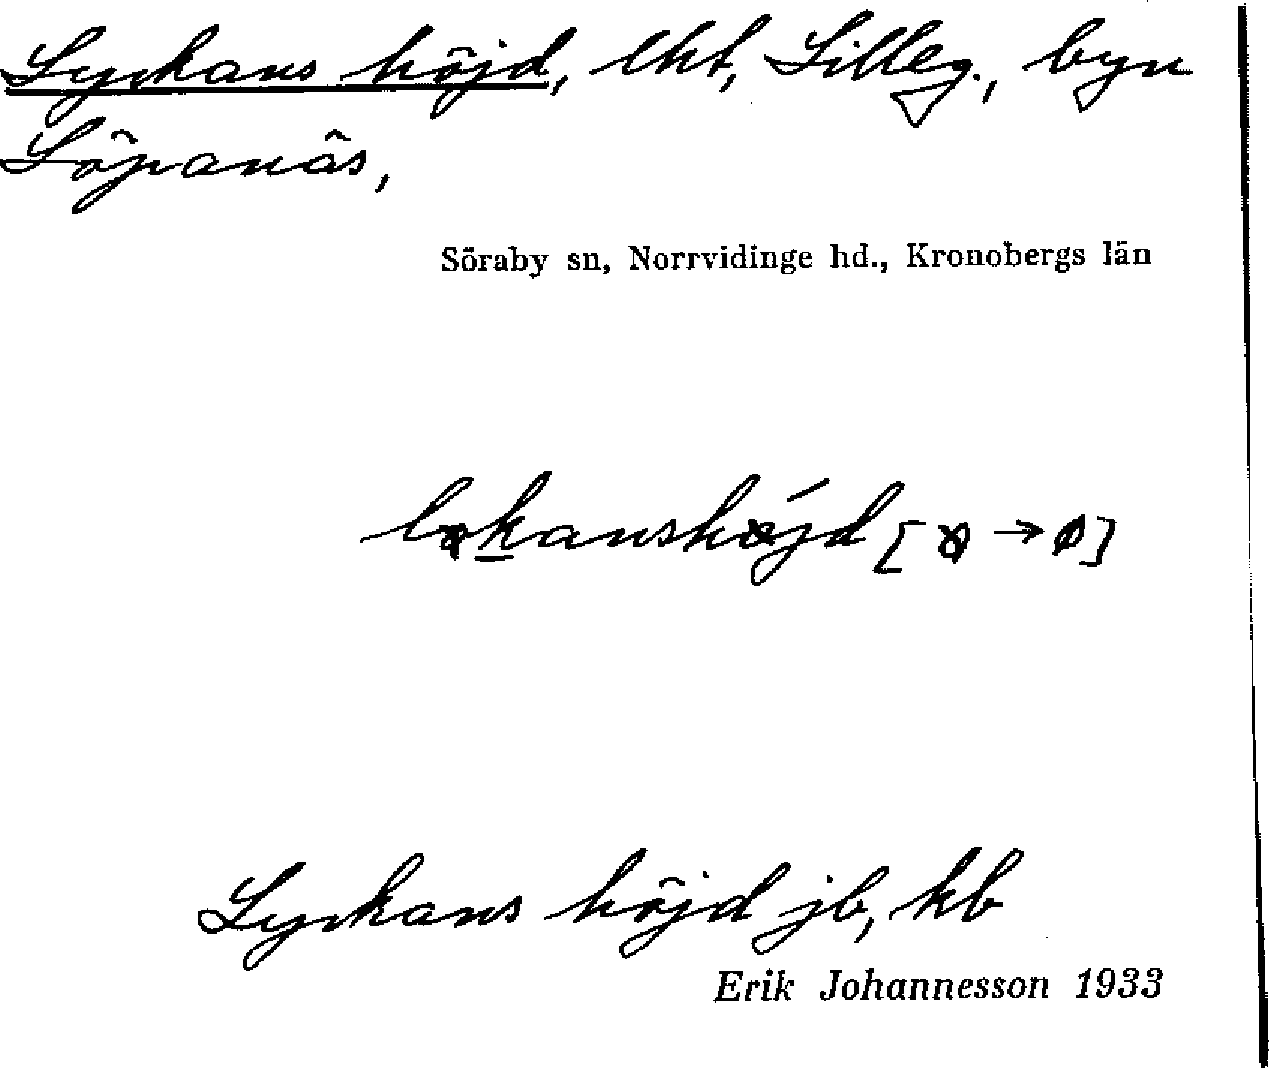 Lyckans höjd, lht, Lilleg., byn
Löpanäs,
Söraby sn, Norrvidinge hd., Kronobergs län
Lyckans höjd jb, kb
Erik Johannesson 1933